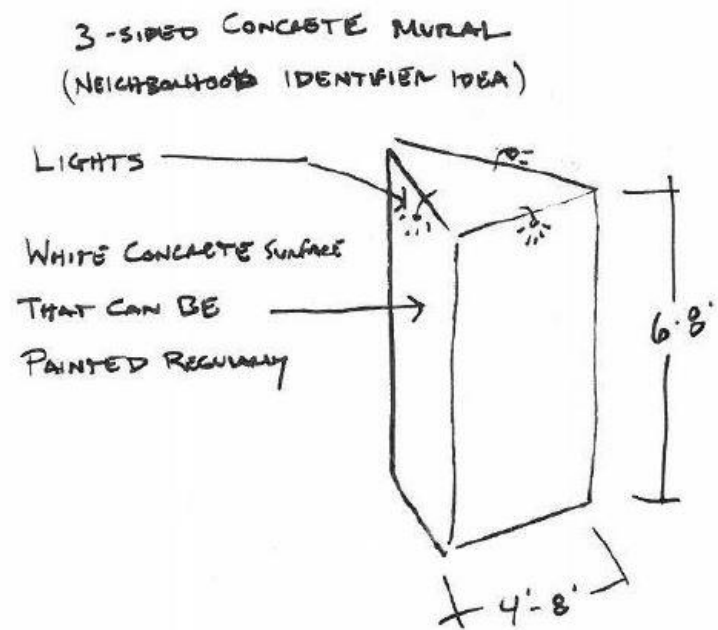 3-SIDED CONCRETE MURAL
(NEIGHBORHOOD IDENTIFIER IDEA)
LIGHTS
WHITE CONCRETE SURFACE
THAT CAN BE
PAINTED REGULARLY
6-8'
4'-8'